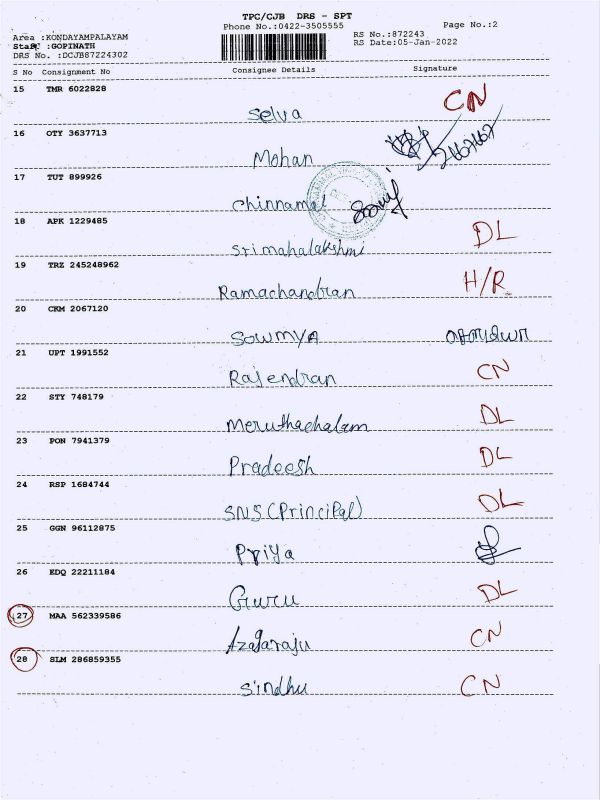 TPC/CJB DRS - SPT
Phone No.:0422-3505555
Page No.:2
Area :KONDAYAMPALAYAM
RS No.:872243
Staff :GOPINATH
RS Date:05-Jan-2022
DRS No. :DCJB87224302
S No Consignment No Consignee Details Signature
15 TMR 6022828
Selva CN
16 OTY 3637713
Mohan
17 TUT 899926
Chinnamal
18 APK 1229485
Srimahalakshmi DL
19 TRZ 245248962
Ramachandran H/R
20 CKM 2067120
Sowmya
21 UPT 1991552
Rajendran CN
22 STY 748179
Meruthachalam DL
23 PON 7941379
Pradeesh DL
24 RSP 1684744
SNS (Principal) DL
25 GGN 96112875
Priya
26 EDQ 22211184
Guru DL
27 MAA 562339586
Azagaraju CN
28 SLM 286859355
Sindhu CN